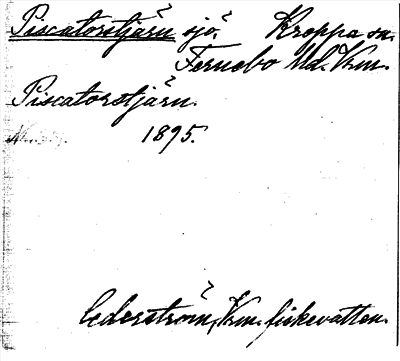 Piscatorstjärn sjö. Kroppa sn.
Fernebo Hd. Vrm.
Piscatorstjärn.
1895.
Cederström, Vrm. fiskevatten.